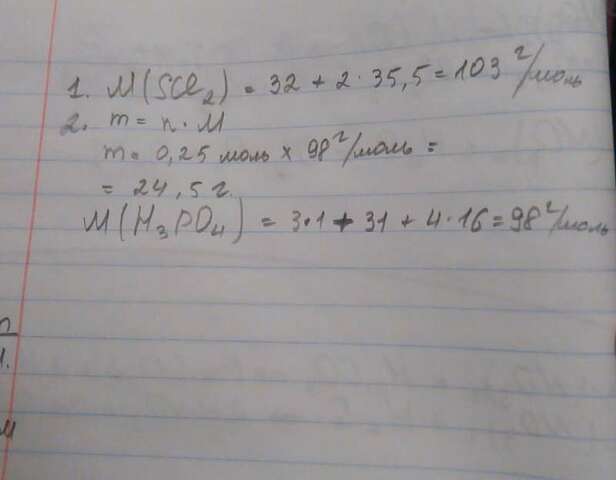 1. M(SCl₂) = 32 + 2·35,5 = 103 г/моль
2. m = n·M
m = 0,25 моль × 98 г/моль =
= 24,5 г.
M(H₃PO₄) = 3·1 + 31 + 4·16 = 98 г/моль
n
1.
м